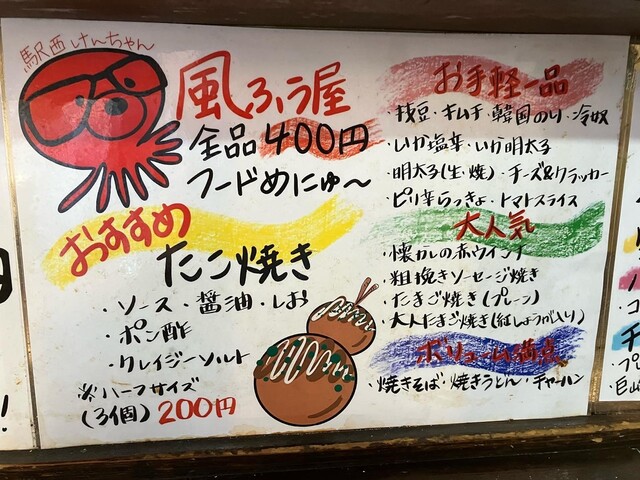 駅西けんちゃん
風ふう屋
全品400円
フードめにゅ〜
おすすめ
たこ焼き
・ソース・醤油・しお
・ポン酢
・クレイジーソルト
※ハーフサイズ
(3個)200円
お手軽一品
・枝豆・キムチ・韓国のり・冷奴
・いか塩辛・いか明太子
・明太子(生・焼)・チーズ&クラッカー
・ピリ辛らっきょ・トマトスライス
大人気
・懐かしの赤ウインナ
・粗挽きソーセージ焼き
・たまご焼き(プレーン)
・大人たまご焼き(紅しょうが入り)
ボリューム満点
・焼きそば・焼きうどん・チャーハン